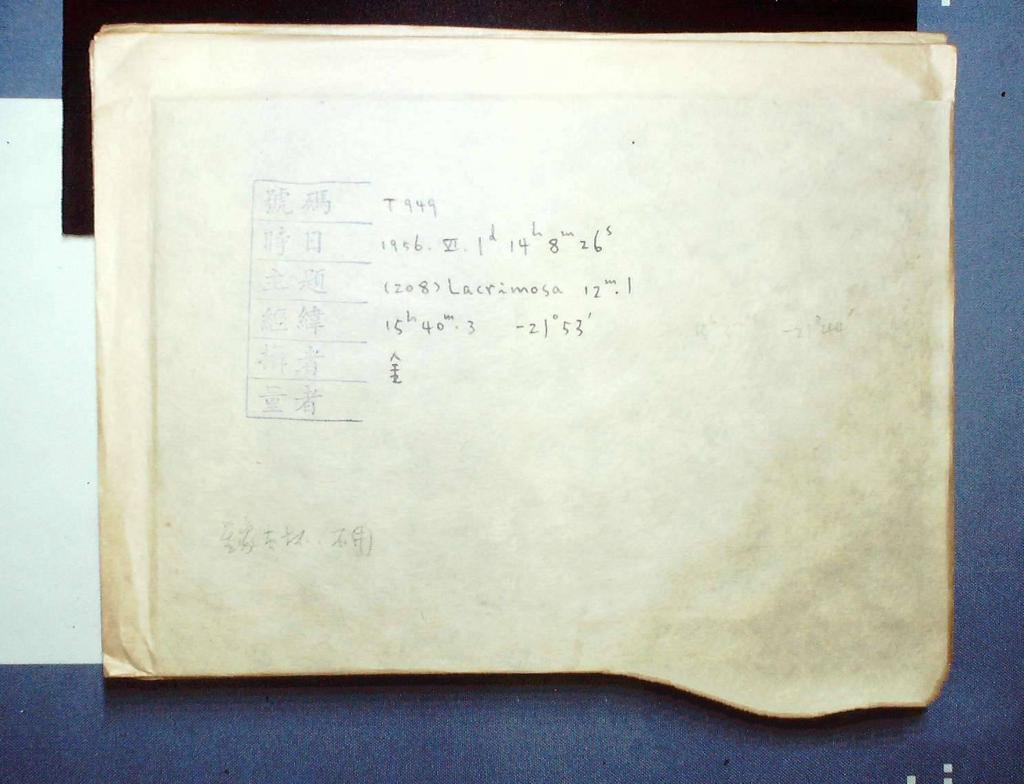 號碼 T 949
時日 1956. VI. 1ᵈ 14ʰ 8ᵐ 26ˢ
主題 (208) Lacrimosa 12ᵐ.1
經緯 15ʰ 40ᵐ.3 -21°53′
拚者 金
量者